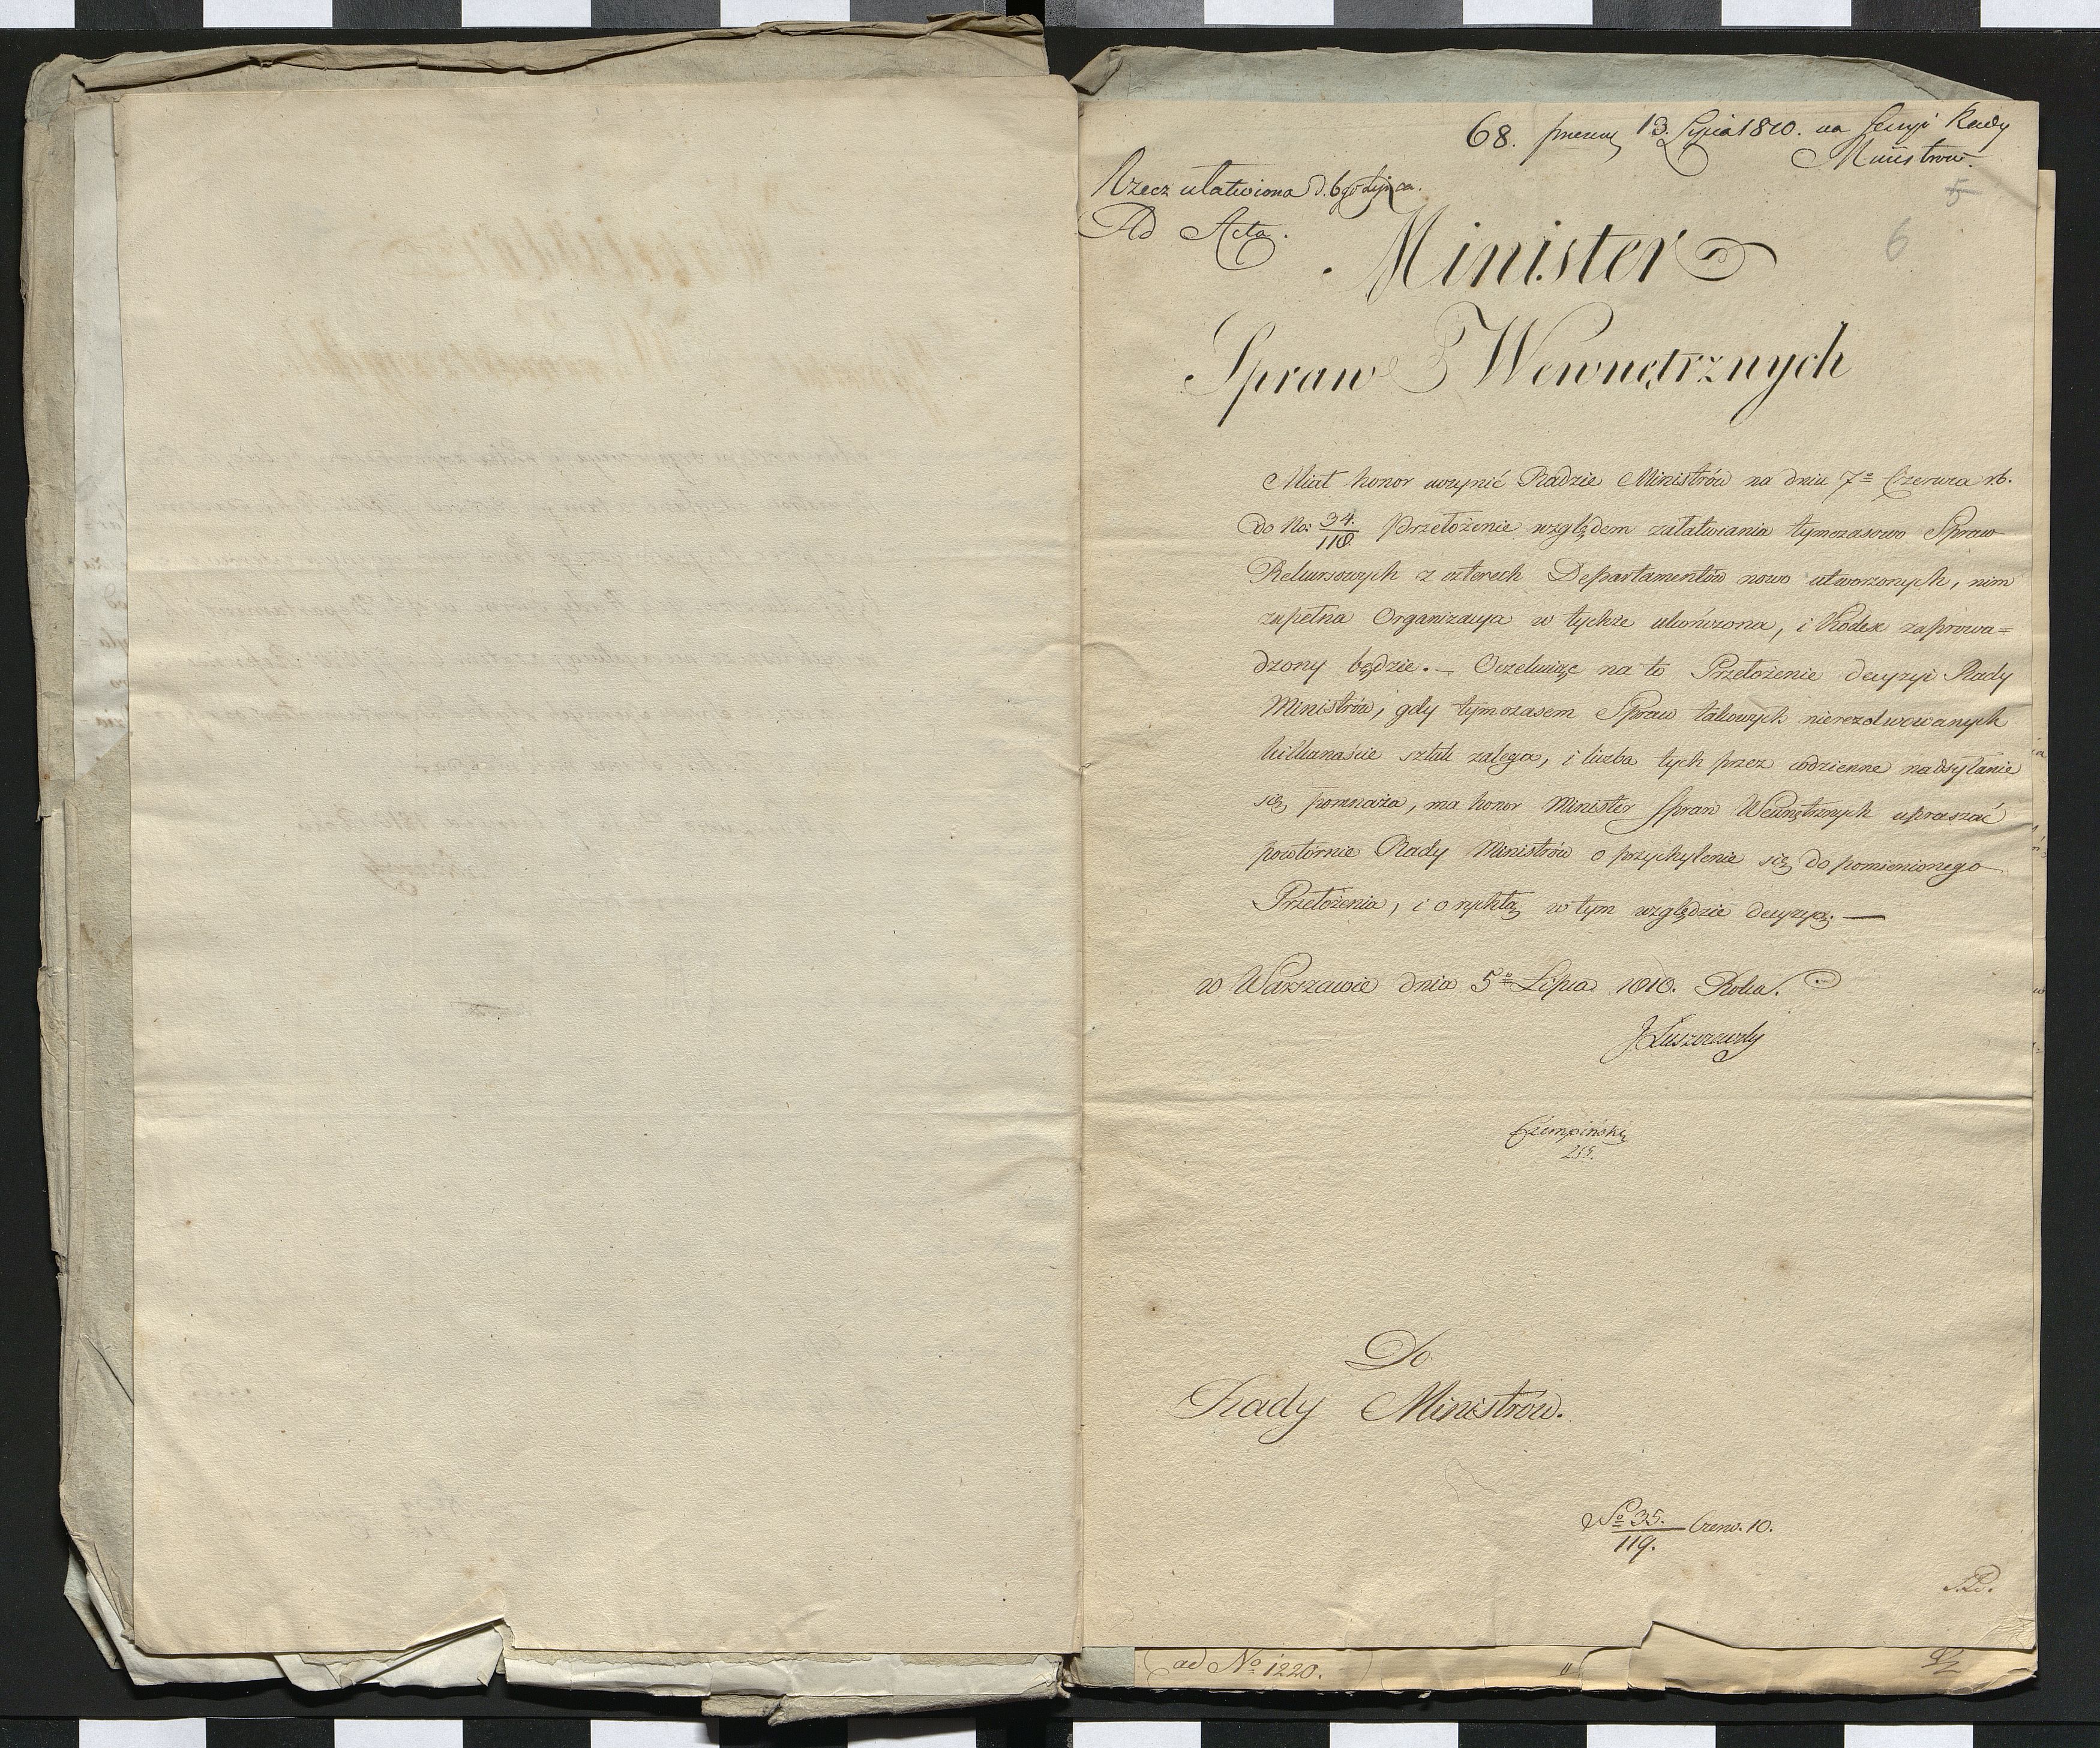 68. 13. Lipca 1810. na Sessyi Rady
Ministrow.
Rzecz ułatwiona d. 6go Lipca.
Ad Acta.
5
6
Minister
Spraw Wewnętrznych
Miał honor uczynić Radzie Ministrów na dniu 7o Czerwca r.b.
do No: 34./118. Przełożenie względem załatwiania tymczasowo Spraw
Rekursowych z czterech Departamentów nowo utworzonych, nim
zupełna Organizacya w tychże ukończona, i Kodex zaprowa=
dzony będzie. — Oczekuiąc na to Przełożenie decyzyi Rady
Ministrów, gdy tymczasem Spraw takowych nierezolwowanych
kilkanaście sztuk zalega, i liczba tych przez codzienne nadsyłanie
się pomnaża, ma honor Minister Spraw Wewnętrznych upraszać
powtórnie Rady Ministrów o przychylenie się do pomienionego
Przełożenia, i o rychłą w tym względzie decyzyą. —
w Warszawie dnia 5o Lipca 1810. Roku.
JŁuszczewsky
Czempiński
Do
Rady Ministrów.
No 35./119. Czerw. 10.
ad No 1220.